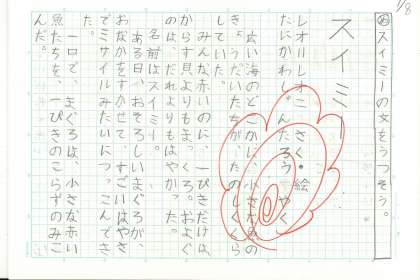 1/8
め スイミーの文をうつそう。
スイミー
レオ=レオニ さく・絵
たにかわしゅんたろう やく
広い海のどこかに、小さな魚の
きょうだいたちが、たのしくくら
していた。
みんな赤いのに、一ぴきだけは、
からす貝よりもまっくろ。およぐ
のは、だれよりもはやかった。
名前はスイミー。
ある日、おそろしいまぐろが、
おなかをすかせて、すごいはやさ
でミサイルみたいにつっこんでき
た。
一口で、まぐろは、小さな赤い
魚たちを、一ぴきのこらずのみこ
んだ。